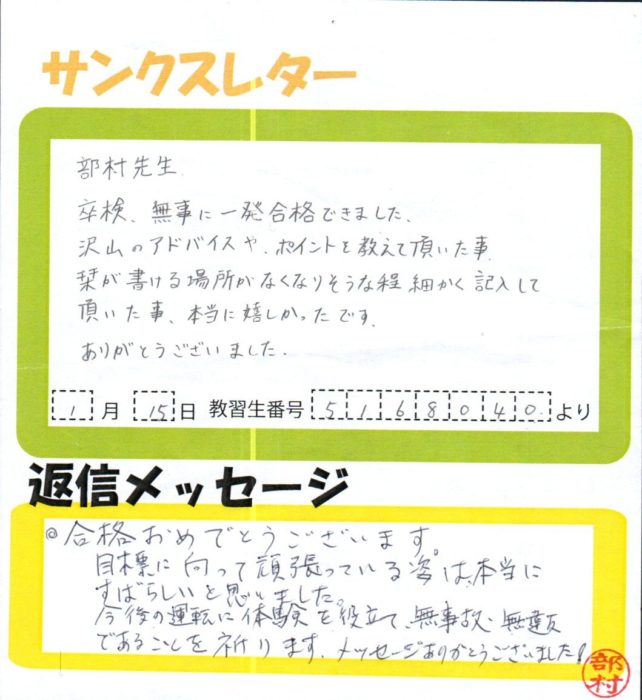 サンクスレター
部村先生
卒検、無事に一発合格できました、
沢山のアドバイスや、ポイントを教えて頂いた事
栞が書ける場所がなくなりそうな程細かく記入して
頂いた事、本当に嬉しかったです。
ありがとうございました.
1月15日 教習生番号 5168040より
返信メッセージ
◎合格おめでとうございます。
目標に向って頑張っている姿は、本当に
すばらしいと思いました。
今後の運転に体験を役立て、無事故・無違反
であることを祈ります、メッセージありがとうございました!
部村